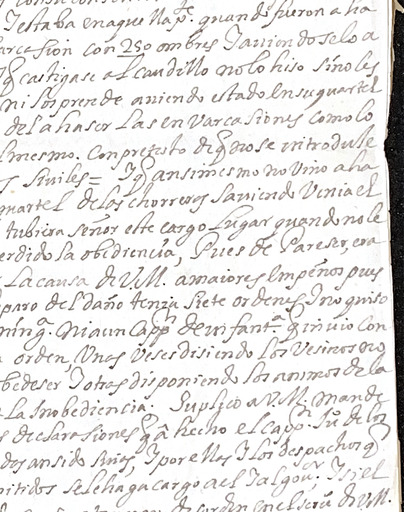 Y estaba en aquella p.te quando fueron a ha
varcasion con 250 ombres Y aviendoselo a
q castigase al caudillo no lo hiso sino les
ni los prende aviendo estado en su quartel
de la haser las envarcasiones como lo
lmesmo. Con pretesto de q no se introdule
siviles = Y q ansimesmo no vino a la
quartel de los chorreros saviendo venia el
tubiera señor este cargo lugar quando no le
erdido la obediencia, Pues de Pareser, era
La causa de V.M. a maiores Empeños pues
paro del daño tenia siete ordenes Y no quiso
ning.a ni a un Capp.n de infant.a q invio con
a orden, Unas veses disiendo los Vesinos no
bedeser Y otras disponiendo los animos de la
e La Inobediencia. Suplico a V.M. mande
s declarasiones q a hecho el Capp.n Ju.o de los
dos an sido suios, Y por ellas Y los despachos q
mitidos se le haga cargo a el Tal gov.r Y si el
orden en el seru.o de V.M.